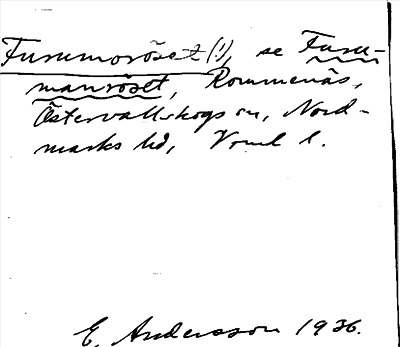 Furumoröset (!), se Furu-
manröset, Rommenäs,
Östervallskogs sn, Nord-
marks hd, Vrml l.
E. Andersson 1936.